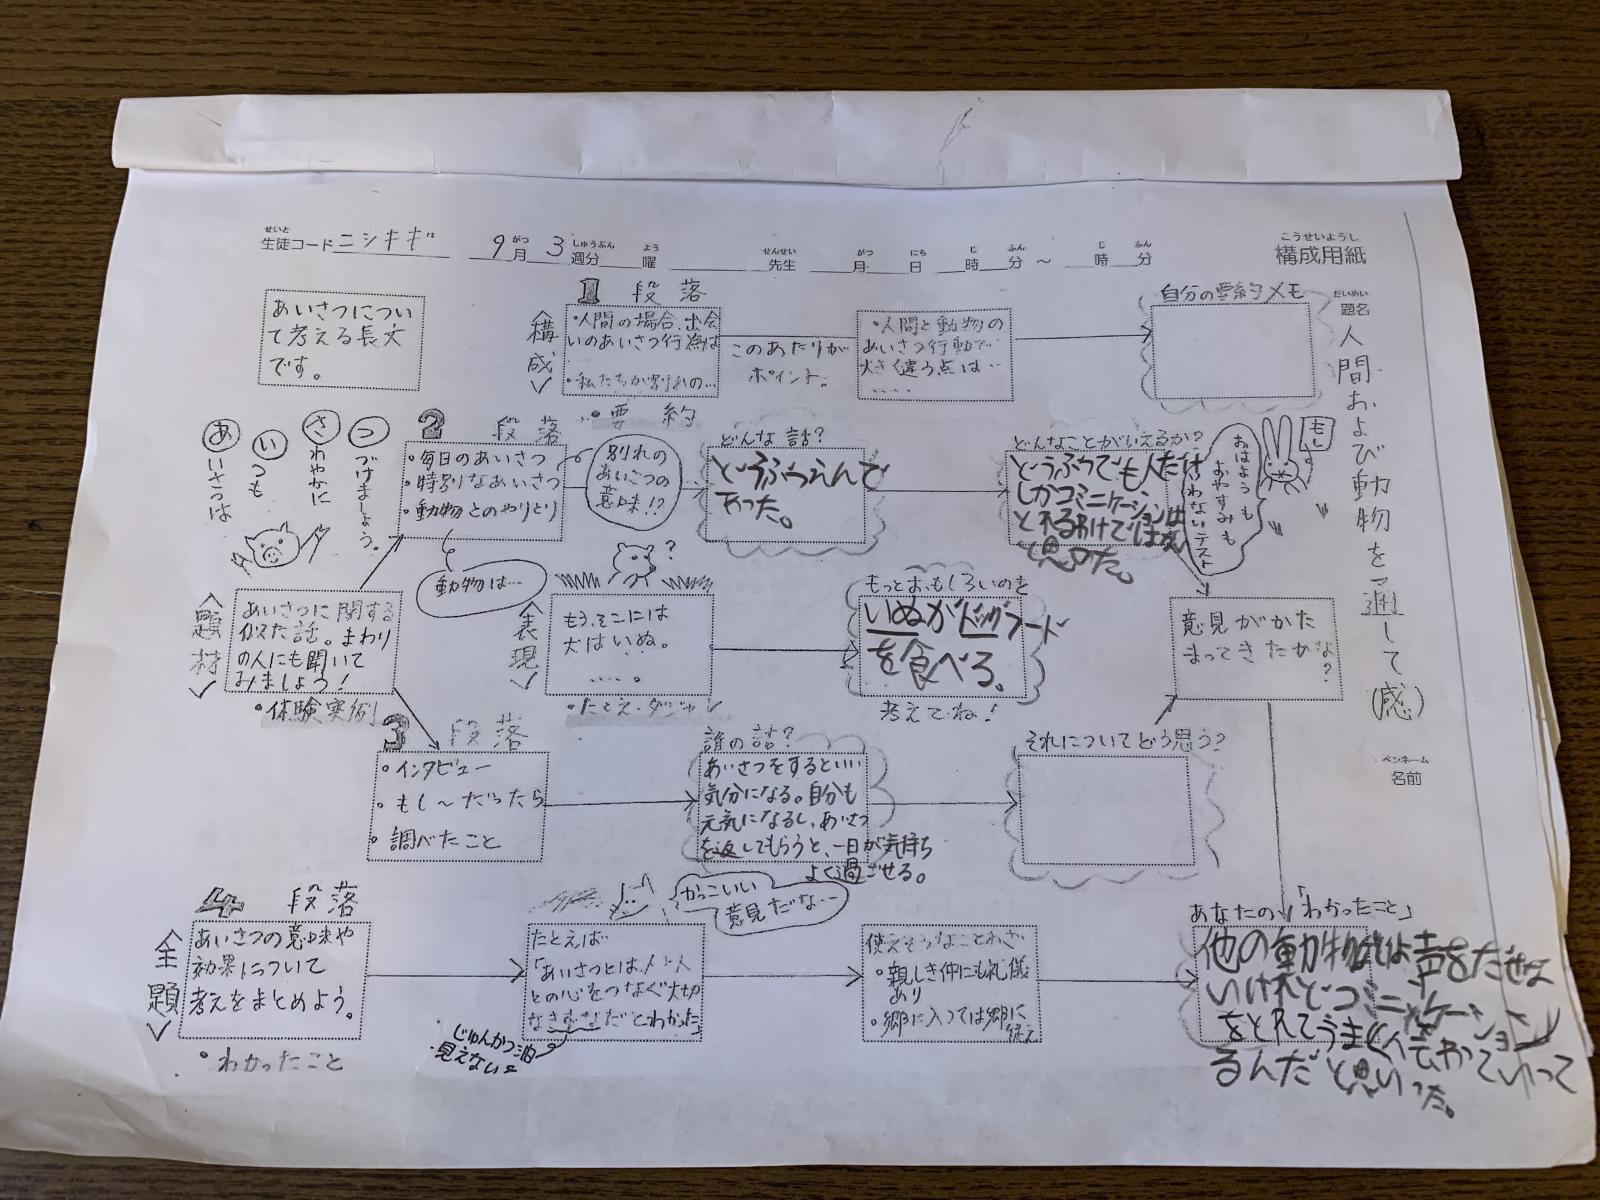 せいと
生徒コードニシキギ 9月3週分 曜 先生 月 日 時 分 ～ 時 分
がつ しゅうぶん よう せんせい がつ にち じ ふん じ ふん
こうせいようし
構成用紙
だいめい
題名
人間および動物を通して(感)
ペンネーム
名前
あいさつについ
て考える長文
です。
1 段落
<構成>
・人間の場合、出会
いのあいさつ行為は
…
・私たちが別れの…
・要約
このあたりが
ポイント。
・人間と動物の
あいさつ行動で
大きく違う点は‥
‥‥
自分の要約メモ
あいさつは
いつも
さわやかに
つづけましょう。
2 段落
・毎日のあいさつ
・特別なあいさつ
・動物とのやりとり
別れの
あいさつの
意味!?
動物は…
どんな話?
どうぶつえんで
あった。
どんなことがいえるか?
どうぶつでも人だけ
しかコミニケーションは
とれるわけではない
と思った。
もし
おはようも
おやすみも
いわないテスト
<題材>
あいさつに関する
似た話。まわり
の人にも聞いて
みましょう!
・体験実例
<表現>
?
もう、そこには
犬はいぬ。
‥‥。
・たとえ・ダジャレ
もっとおもしろいのを
いぬがドッグフード
を食べる。
考えてね!
意見がかた
まってきたかな
?
3 段落
・インタビュー
・もし～だったら
・調べたこと
誰の話?
あいさつをするといい
気分になる。自分も
元気になるし、あいさつ
を返してもらうと、一日が気持ち
よく過ごせる。
それについてどう思う?
4 段落
<全題>
あいさつの意味や
効果について
考えをまとめよう。
・わかったこと
かっこいい
意見だな…
たとえば
「あいさつとは、人と人
との心をつなぐ大切
なきずなだとわかった
じゅんかつ油
見えない
使えそうなことわざ
・親しき仲にも礼儀
あり
・郷に入っては郷に
従え
あなたの「わかったこと」
他の動物は声をだせな
いけれどコミニュケーション
をとれてうまく
るんだと思った。